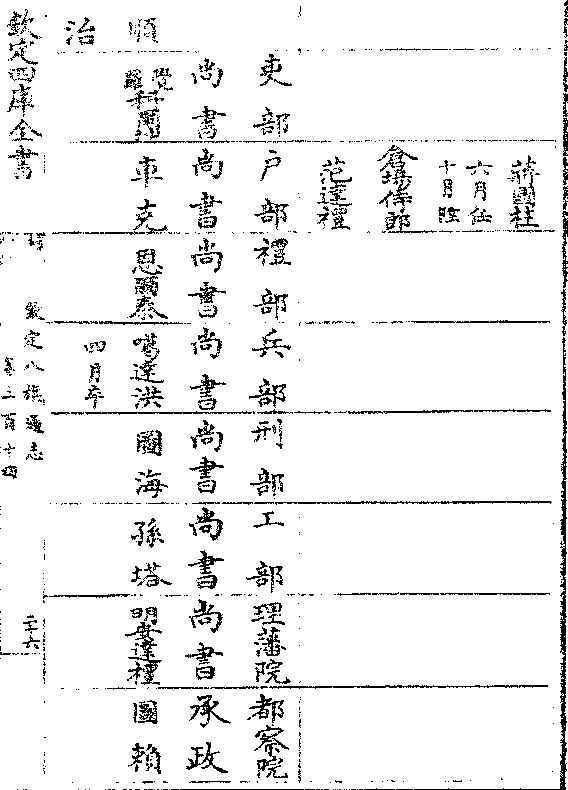 蔣國柱
六月任
十月陞
倉場侍郎
范達禮
吏部 户部 禮部 兵部 刑部 工部 理藩院 都察院
尚書 尚書 尚書 尚書 尚書 尚書 尚書 承政
順 覺羅科爾昆 車克 恩爾泰 噶達洪 圖海 孫塔 明安達禮 圖賴
四月卒
治
欽定四庫全書
欽定八旗通志
二十六